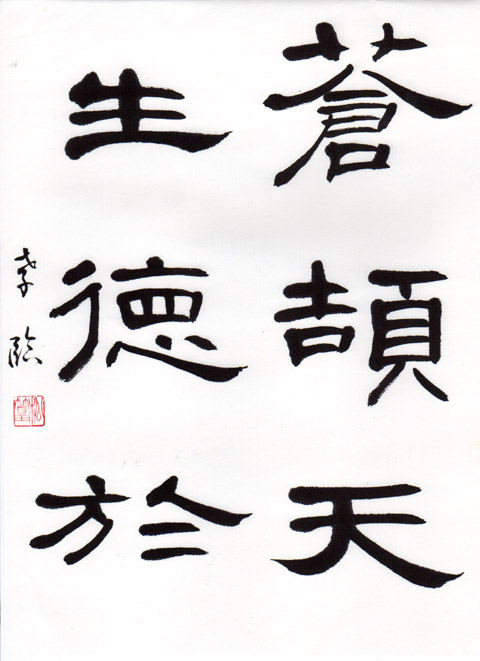 蒼頡天
生德於
孝臨